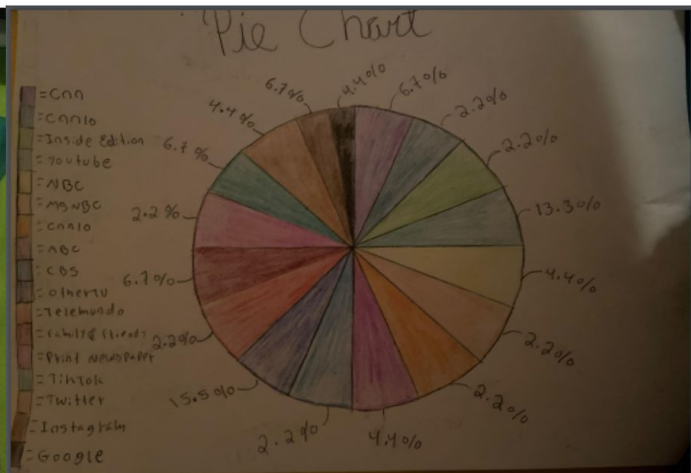 Pie Chart
=Cnn
=Cnn10
=Inside Edition
=Youtube
=NBC
=MSNBC
=Cnn10
=ABC
=CBS
=OtherTV
=Telemundo
=Family & friends
=Print Newspaper
=TikTok
=Twitter
=Instagram
=Google
6.7%
2.2%
2.2%
13.3%
4.4%
2.2%
2.2%
4.4%
2.2%
15.5%
2.2%
6.7%
2.2%
6.7%
4.4%
6.7%
4.4%